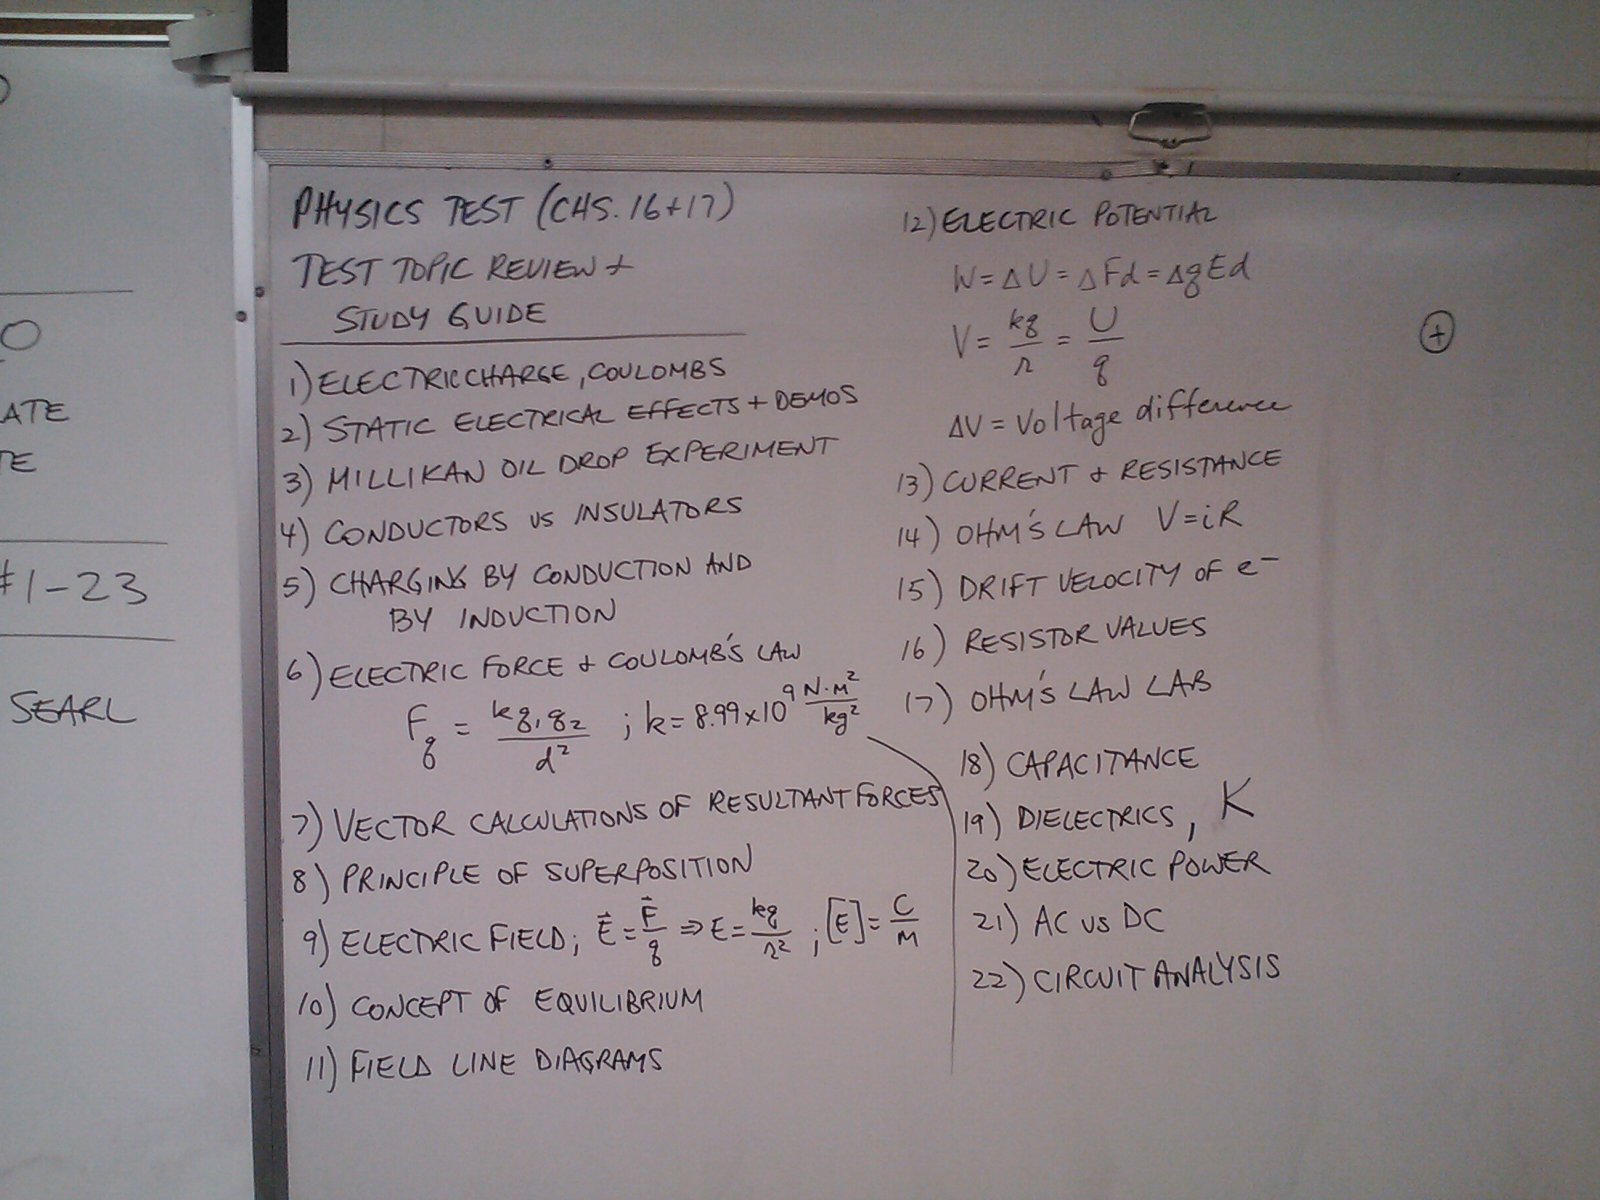 O
ATE
TE
#1-23
SEARL
PHYSICS TEST (CHS. 16+17)
TEST TOPIC REVIEW +
STUDY GUIDE
1) ELECTRIC CHARGE, COULOMBS
2) STATIC ELECTRICAL EFFECTS + DEMOS
3) MILLIKAN OIL DROP EXPERIMENT
4) CONDUCTORS VS INSULATORS
5) CHARGING BY CONDUCTION AND
BY INDUCTION
6) ELECTRIC FORCE + COULOMB'S LAW
F_q = kq₁q₂/d² ; k = 8.99x10⁹ N·m²/kg²
7) VECTOR CALCULATIONS OF RESULTANT FORCES
8) PRINCIPLE OF SUPERPOSITION
9) ELECTRIC FIELD; E⃗ = F⃗/q ⇒ E = kq/r² ; [E] = C/M
10) CONCEPT OF EQUILIBRIUM
11) FIELD LINE DIAGRAMS
12) ELECTRIC POTENTIAL
W = ΔU = ΔFd = ΔqEd
V = kq/r = U/q
ΔV = Voltage difference
13) CURRENT + RESISTANCE
14) OHM'S LAW V = iR
15) DRIFT VELOCITY OF e⁻
16) RESISTOR VALUES
17) OHM'S LAW LAB
18) CAPACITANCE
19) DIELECTRICS, K
20) ELECTRIC POWER
21) AC VS DC
22) CIRCUIT ANALYSIS
+